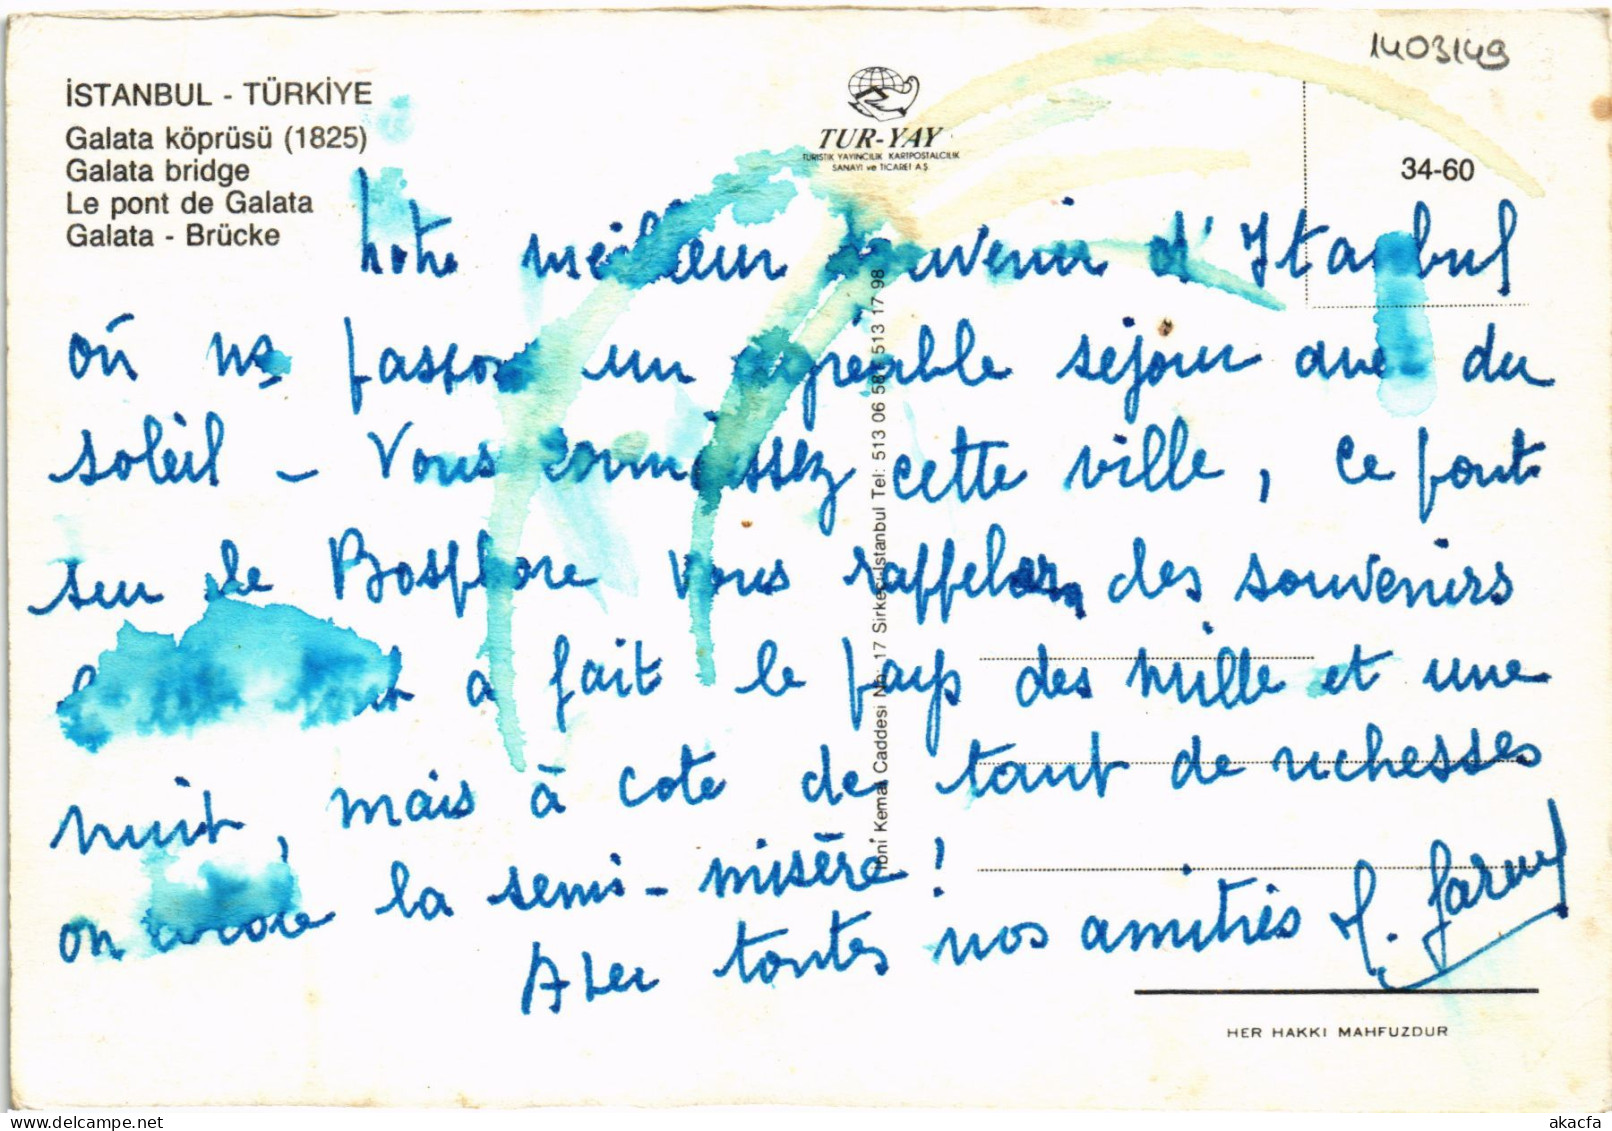 1403149
İSTANBUL - TÜRKİYE
Galata köprüsü (1825)
Galata bridge
Le pont de Galata
Galata - Brücke
TUR-YAY
TURİSTİK YAYINCILIK KARTPOSTALCILIK
SANAYİ ve TİCARET A.Ş.
34-60
Notre meilleur souvenir d'Istanbul
où ns passons un agréable séjour avec du
soleil - Vous connaissez cette ville, ce pont
sur le Bosphore vous rappelera des souvenirs
a fait le pays des mille et une
nuit, mais à coté de tant de richesses
on encore la semi-misère!
Avec toutes nos amitiés
İbni Kemal Caddesi No: 17 Sirkeci-İstanbul Tel: 513 06 58 - 513 17 98
HER HAKKI MAHFUZDUR
delcampe.net
akacfa